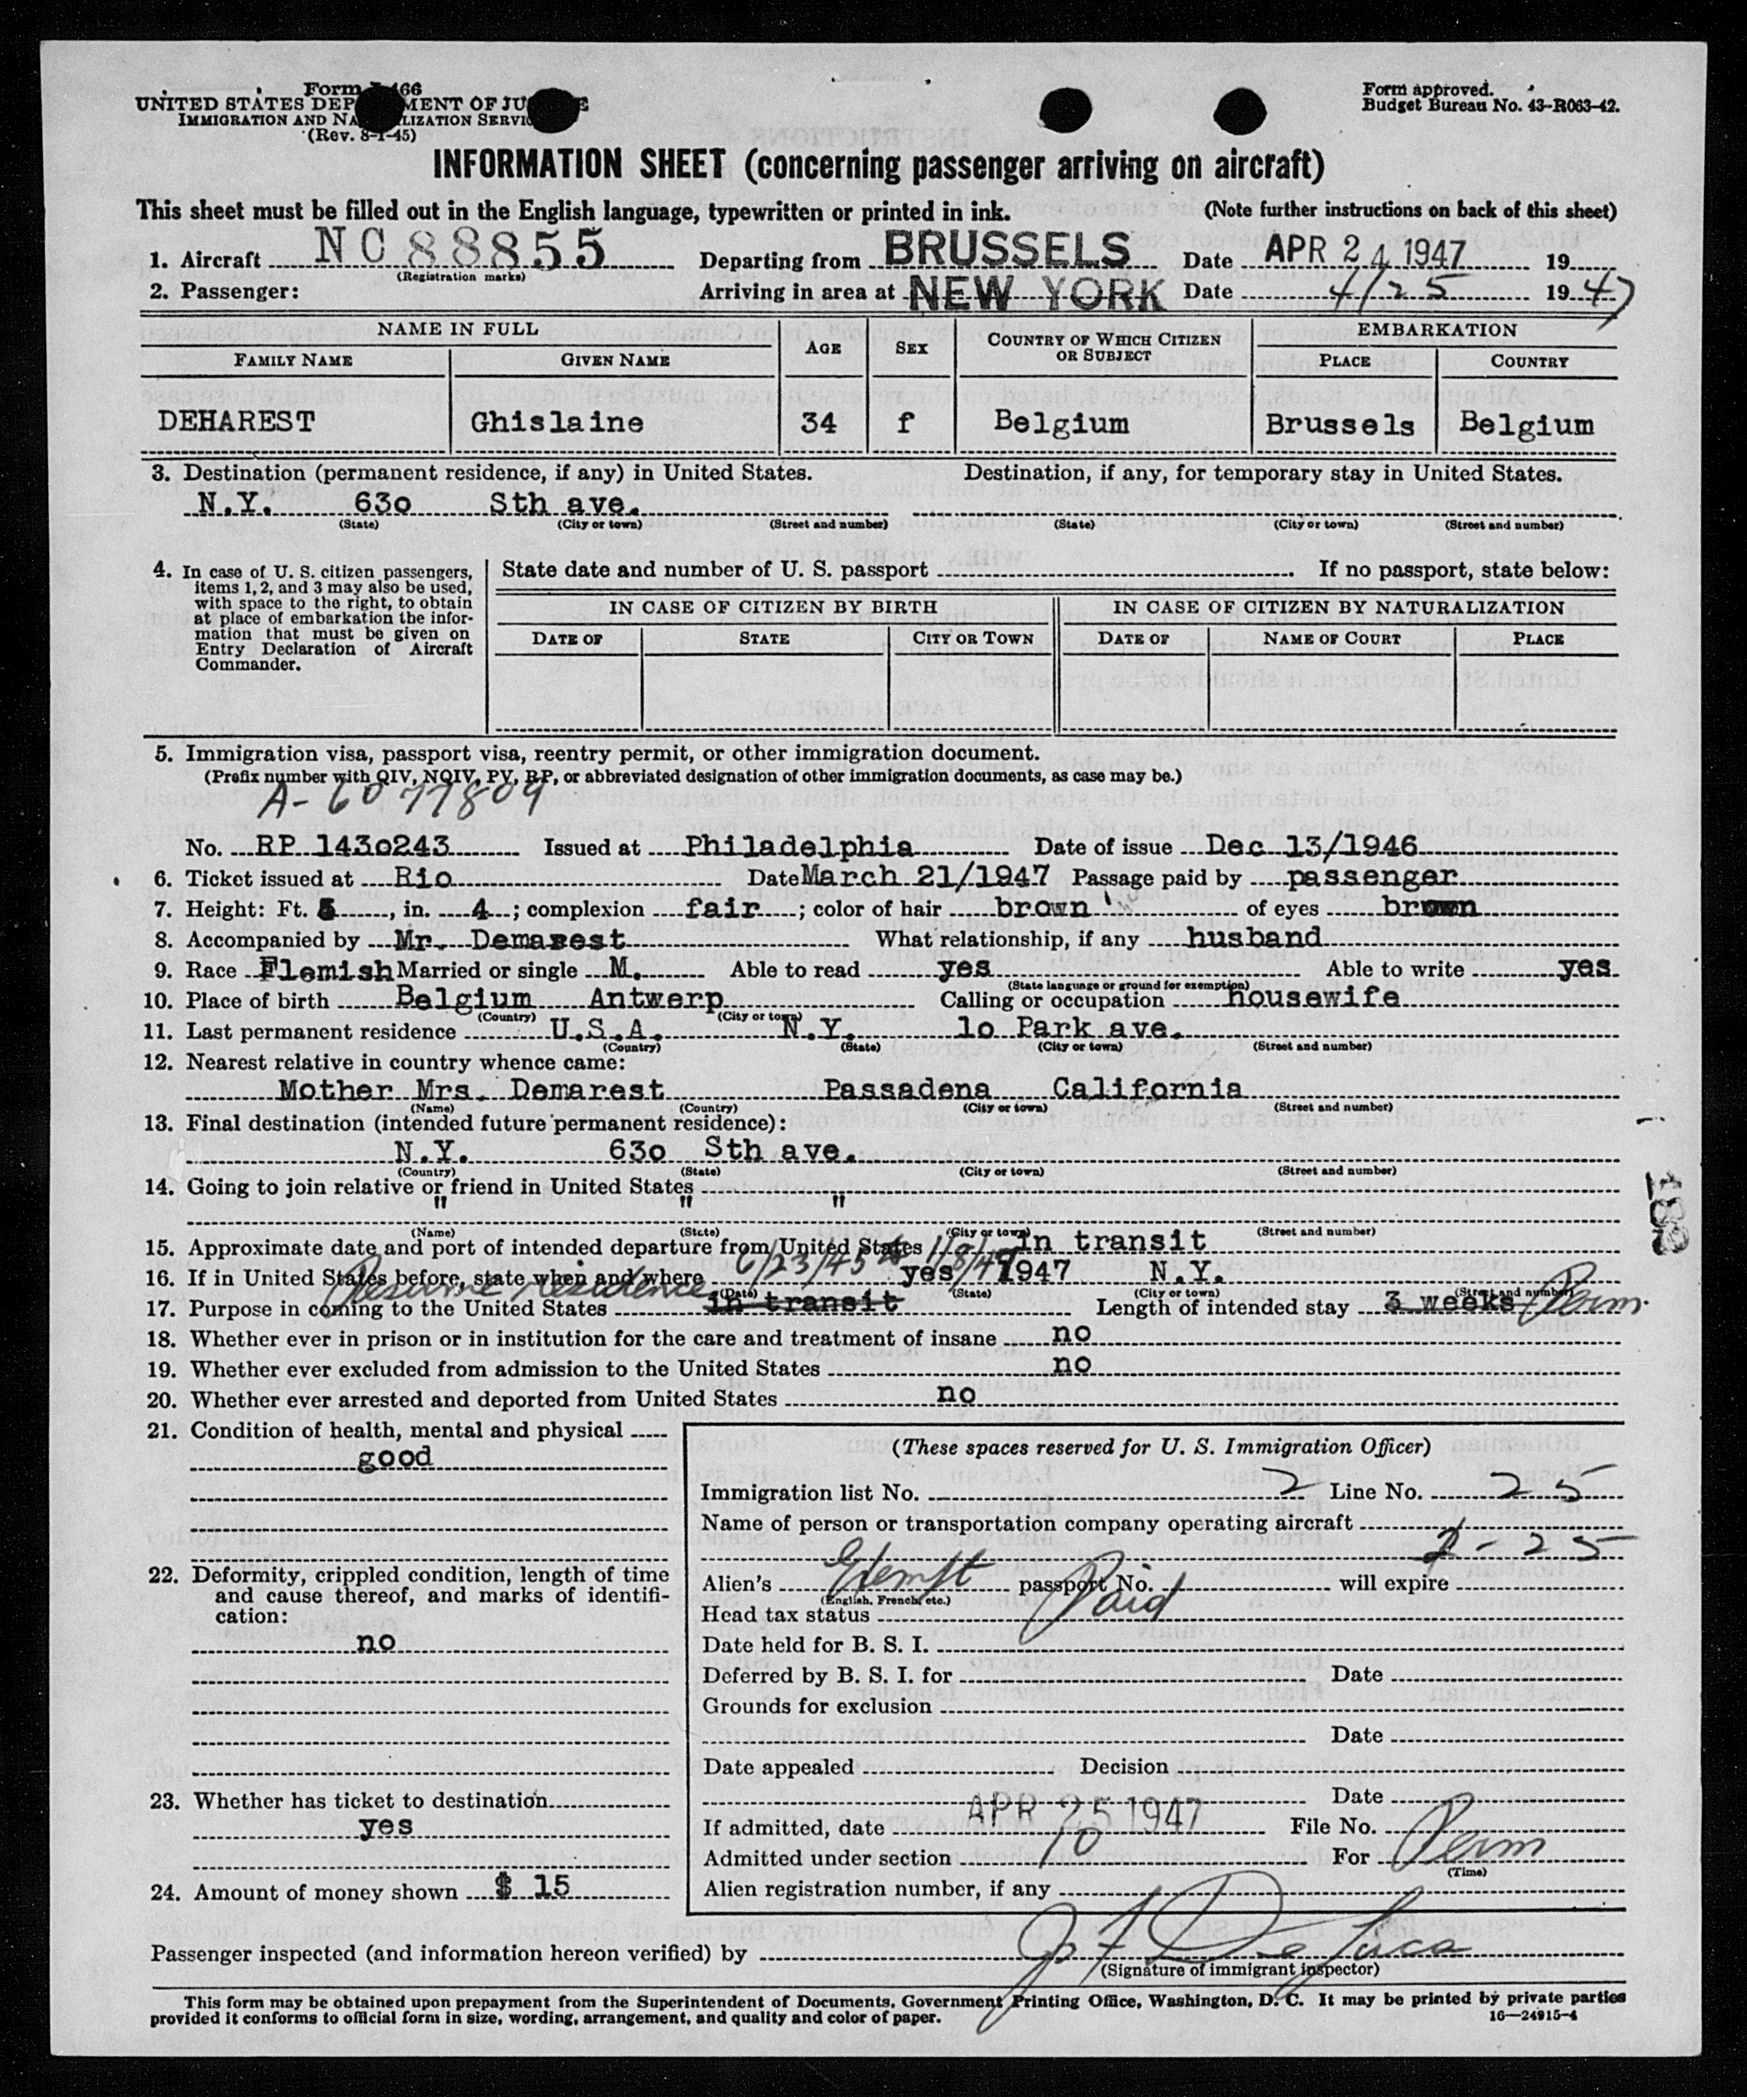 Form I-466
UNITED STATES DEPARTMENT OF JUSTICE
IMMIGRATION AND NATURALIZATION SERVICE
(Rev. 8-1-45)
Form approved.
Budget Bureau No. 43-R063-42.
INFORMATION SHEET (concerning passenger arriving on aircraft)
This sheet must be filled out in the English language, typewritten or printed in ink. (Note further instructions on back of this sheet)
1. Aircraft NC 88855 Departing from BRUSSELS Date APR 24 1947 19
(Registration marks)
2. Passenger: Arriving in area at NEW YORK Date 4/25 1947
NAME IN FULL AGE SEX COUNTRY OF WHICH CITIZEN OR SUBJECT EMBARKATION
FAMILY NAME GIVEN NAME PLACE COUNTRY
DEHAREST Ghislaine 34 f Belgium Brussels Belgium
3. Destination (permanent residence, if any) in United States. Destination, if any, for temporary stay in United States.
N.Y. 63o Sth ave.
(State) (City or town) (Street and number) (State) (City or town) (Street and number)
4. In case of U. S. citizen passengers,
items 1, 2, and 3 may also be used,
with space to the right, to obtain
at place of embarkation the infor-
mation that must be given on
Entry Declaration of Aircraft
Commander.
State date and number of U. S. passport If no passport, state below:
IN CASE OF CITIZEN BY BIRTH IN CASE OF CITIZEN BY NATURALIZATION
DATE OF STATE CITY OR TOWN DATE OF NAME OF COURT PLACE
5. Immigration visa, passport visa, reentry permit, or other immigration document.
(Prefix number with QIV, NQIV, PV, RP, or abbreviated designation of other immigration documents, as case may be.)
A-6077809
No. RP 143o243 Issued at Philadelphia Date of issue Dec 13/1946
6. Ticket issued at Rio Date March 21/1947 Passage paid by passenger
7. Height: Ft. 5, in. 4; complexion fair; color of hair brown of eyes brown
8. Accompanied by Mr. Demarest What relationship, if any husband
9. Race Flemish Married or single M. Able to read yes Able to write yes
(State language or ground for exemption)
10. Place of birth Belgium Antwerp Calling or occupation housewife
(Country) (City or town)
11. Last permanent residence U.S.A. N.Y. 1o Park ave.
(Country) (State) (City or town) (Street and number)
12. Nearest relative in country whence came:
Mother Mrs. Demarest Passadena California
(Name) (Country) (City or town) (Street and number)
13. Final destination (intended future permanent residence):
N.Y. 63o Sth ave.
(Country) (State) (City or town) (Street and number)
14. Going to join relative or friend in United States
" " "
(Name) (State) (City or town) (Street and number)
15. Approximate date and port of intended departure from United States in transit
16. If in United States before, state when and where 6/23/45 to 1/8/47 yes 1947 N.Y.
(Date) (State) (City or town) (Street and number)
Resume residence
17. Purpose in coming to the United States in transit Length of intended stay 3 weeks Perm.
18. Whether ever in prison or in institution for the care and treatment of insane no
19. Whether ever excluded from admission to the United States no
20. Whether ever arrested and deported from United States no
21. Condition of health, mental and physical
good
22. Deformity, crippled condition, length of time
and cause thereof, and marks of identifi-
cation:
no
23. Whether has ticket to destination
yes
24. Amount of money shown $ 15
(These spaces reserved for U. S. Immigration Officer)
Immigration list No. 2 Line No. 25
Name of person or transportation company operating aircraft
2-25
Alien's Exempt passport No. will expire
(English, French, etc.)
Head tax status Paid
Date held for B. S. I.
Deferred by B. S. I. for Date
Grounds for exclusion
Date
Date appealed Decision
Date
If admitted, date APR 25 1947 File No.
Admitted under section 10 For Perm
(Time)
Alien registration number, if any
Passenger inspected (and information hereon verified) by J F De Luca
(Signature of immigrant inspector)
This form may be obtained upon prepayment from the Superintendent of Documents, Government Printing Office, Washington, D. C. It may be printed by private parties
provided it conforms to official form in size, wording, arrangement, and quality and color of paper. 16—24915-4